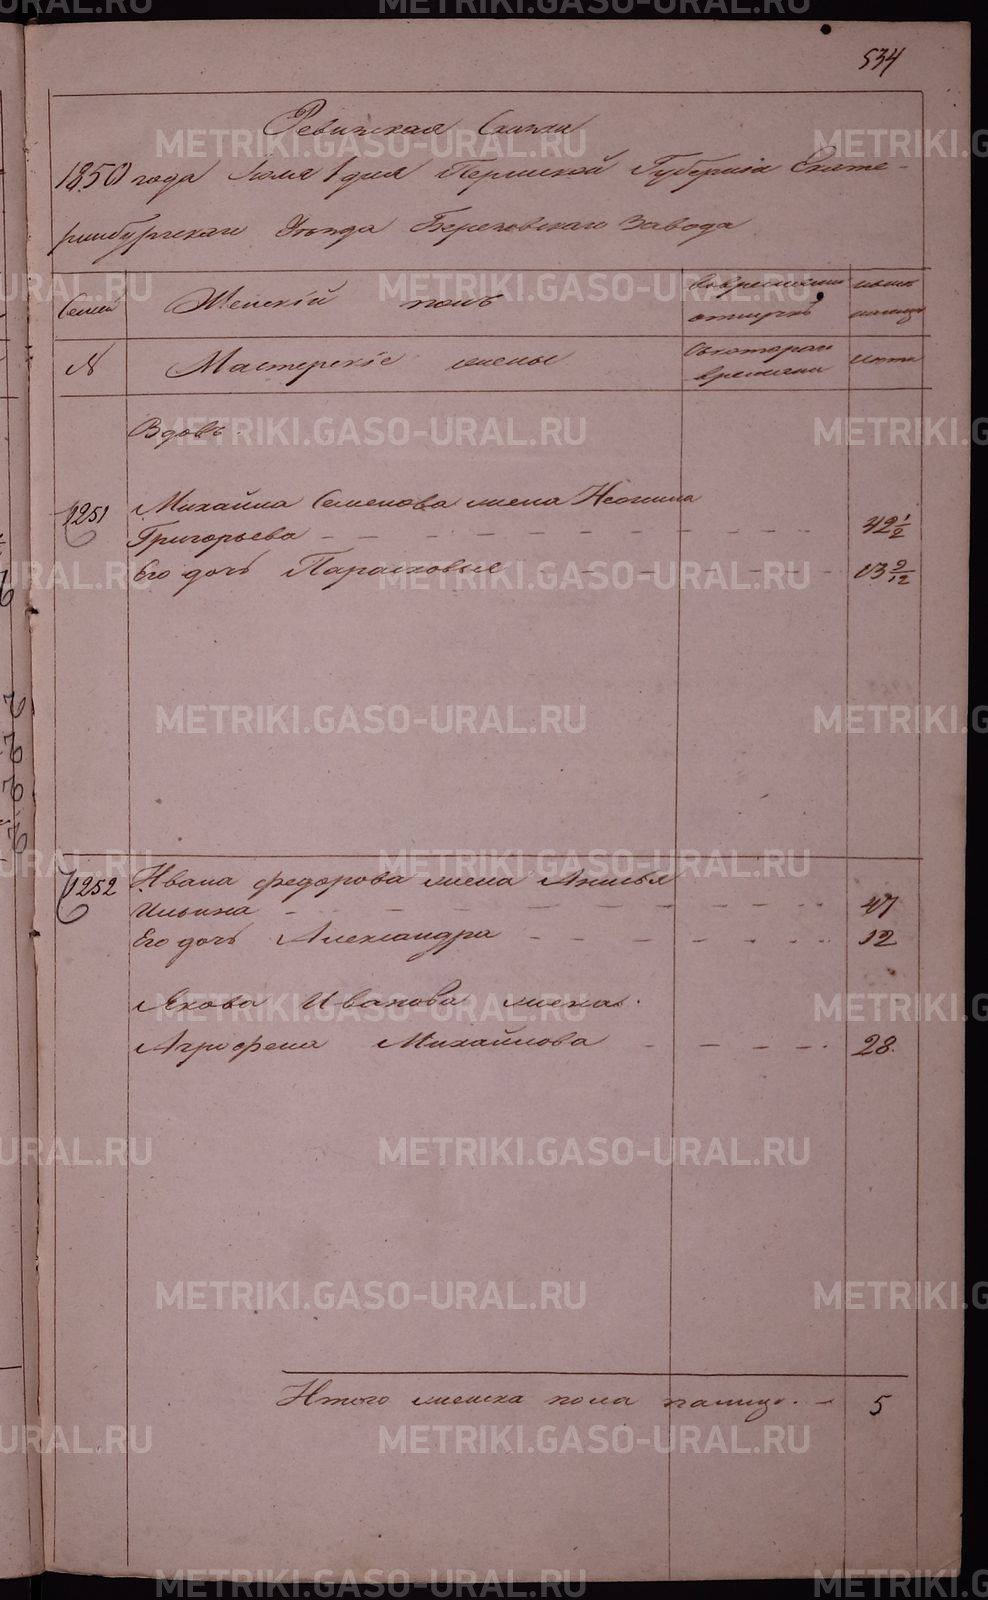 534
Ревизская Сказка
1850 года Июля 1 дня Пермской Губернiи Екате-
ринбургскаго Уѣзда Березовскаго Завода
Семей Женскiй полъ во временной нынѣ
отлучкѣ налицо
№ Мастерскiе жены Съкотораго лѣта
времени
Вдовъ.
1251 Михайла Семенова жена
Григорьева 42 1/2
Его дочь Парасковья 13 9/12
1252 Ивана Федорова жена
Ильина 47
Его дочь Александра 12
Якова Иванова жена
Агрофена Михайлова 28.
Итого женска пола налицо. 5
METRIKI.GASO-URAL.RU